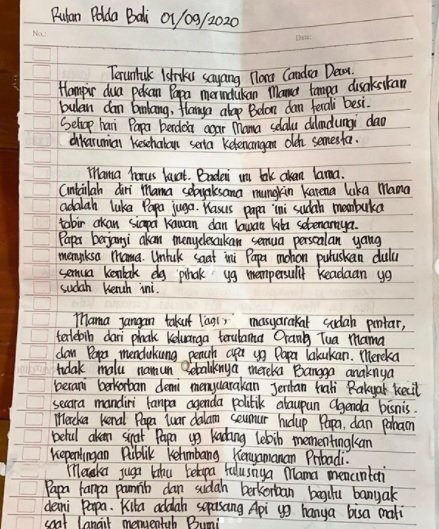 Rutan Polda Bali 01/09/2020
No.: Date:
Teruntuk Istriku sayang Nora Candra Dewi.
Hampir dua pekan Papa merindukan Mama tanpa disaksikan
bulan dan bintang. Hanya atap Beton dan terali besi.
Setiap hari Papa berdoa agar Mama selalu dilindungi dan
dikaruniai kesehatan serta ketenangan oleh semesta.
Mama harus kuat. Badai ini tak akan lama.
Cintailah diri Mama sebijaksana mungkin karena luka Mama
adalah luka Papa juga. Kasus papa ini sudah membuka
tabir akan siapa kawan dan lawan kita sebenarnya.
Papa berjanji akan menyelesaikan semua persoalan yang
menyiksa Mama. Untuk saat ini Papa mohon putuskan dulu
semua kontak dg pihak² yg mempersulit keadaan yg
sudah keruh ini.
Mama jangan takut lagi, masyarakat sudah pintar,
terlebih dari pihak keluarga terutama Orang Tua Mama
dan Papa mendukung penuh apa yg Papa lakukan. Mereka
tidak malu namun sebaliknya mereka Bangga anaknya
berani berkorban demi menyuarakan jeritan hati Rakyat kecil
secara mandiri tanpa agenda politik ataupun agenda bisnis.
Mereka kenal Papa luar dalam seumur hidup Papa, dan paham
betul akan sifat Papa yg kadang lebih mementingkan
kepentingan Publik ketimbang Kenyamanan Pribadi.
Mereka juga tahu betapa tulusnya Mama mencintai
Papa tanpa pamrih dan sudah berkorban begitu banyak
demi Papa. Kita adalah sepasang Api yg hanya bisa mati
saat langit menyentuh Bumi